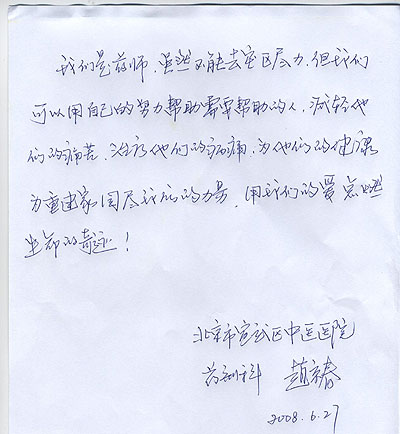 我们是药师，虽然不能去灾区尽力，但我们
可以用自己的努力帮助需要帮助的人，减轻他
们的病苦，治疗他们的病痛，为他们的健康
为重建家园尽我们的力量，用我们的爱点燃
生命的奇迹！
北京市宣武区中医医院
药剂科 赵春
2008.6.27